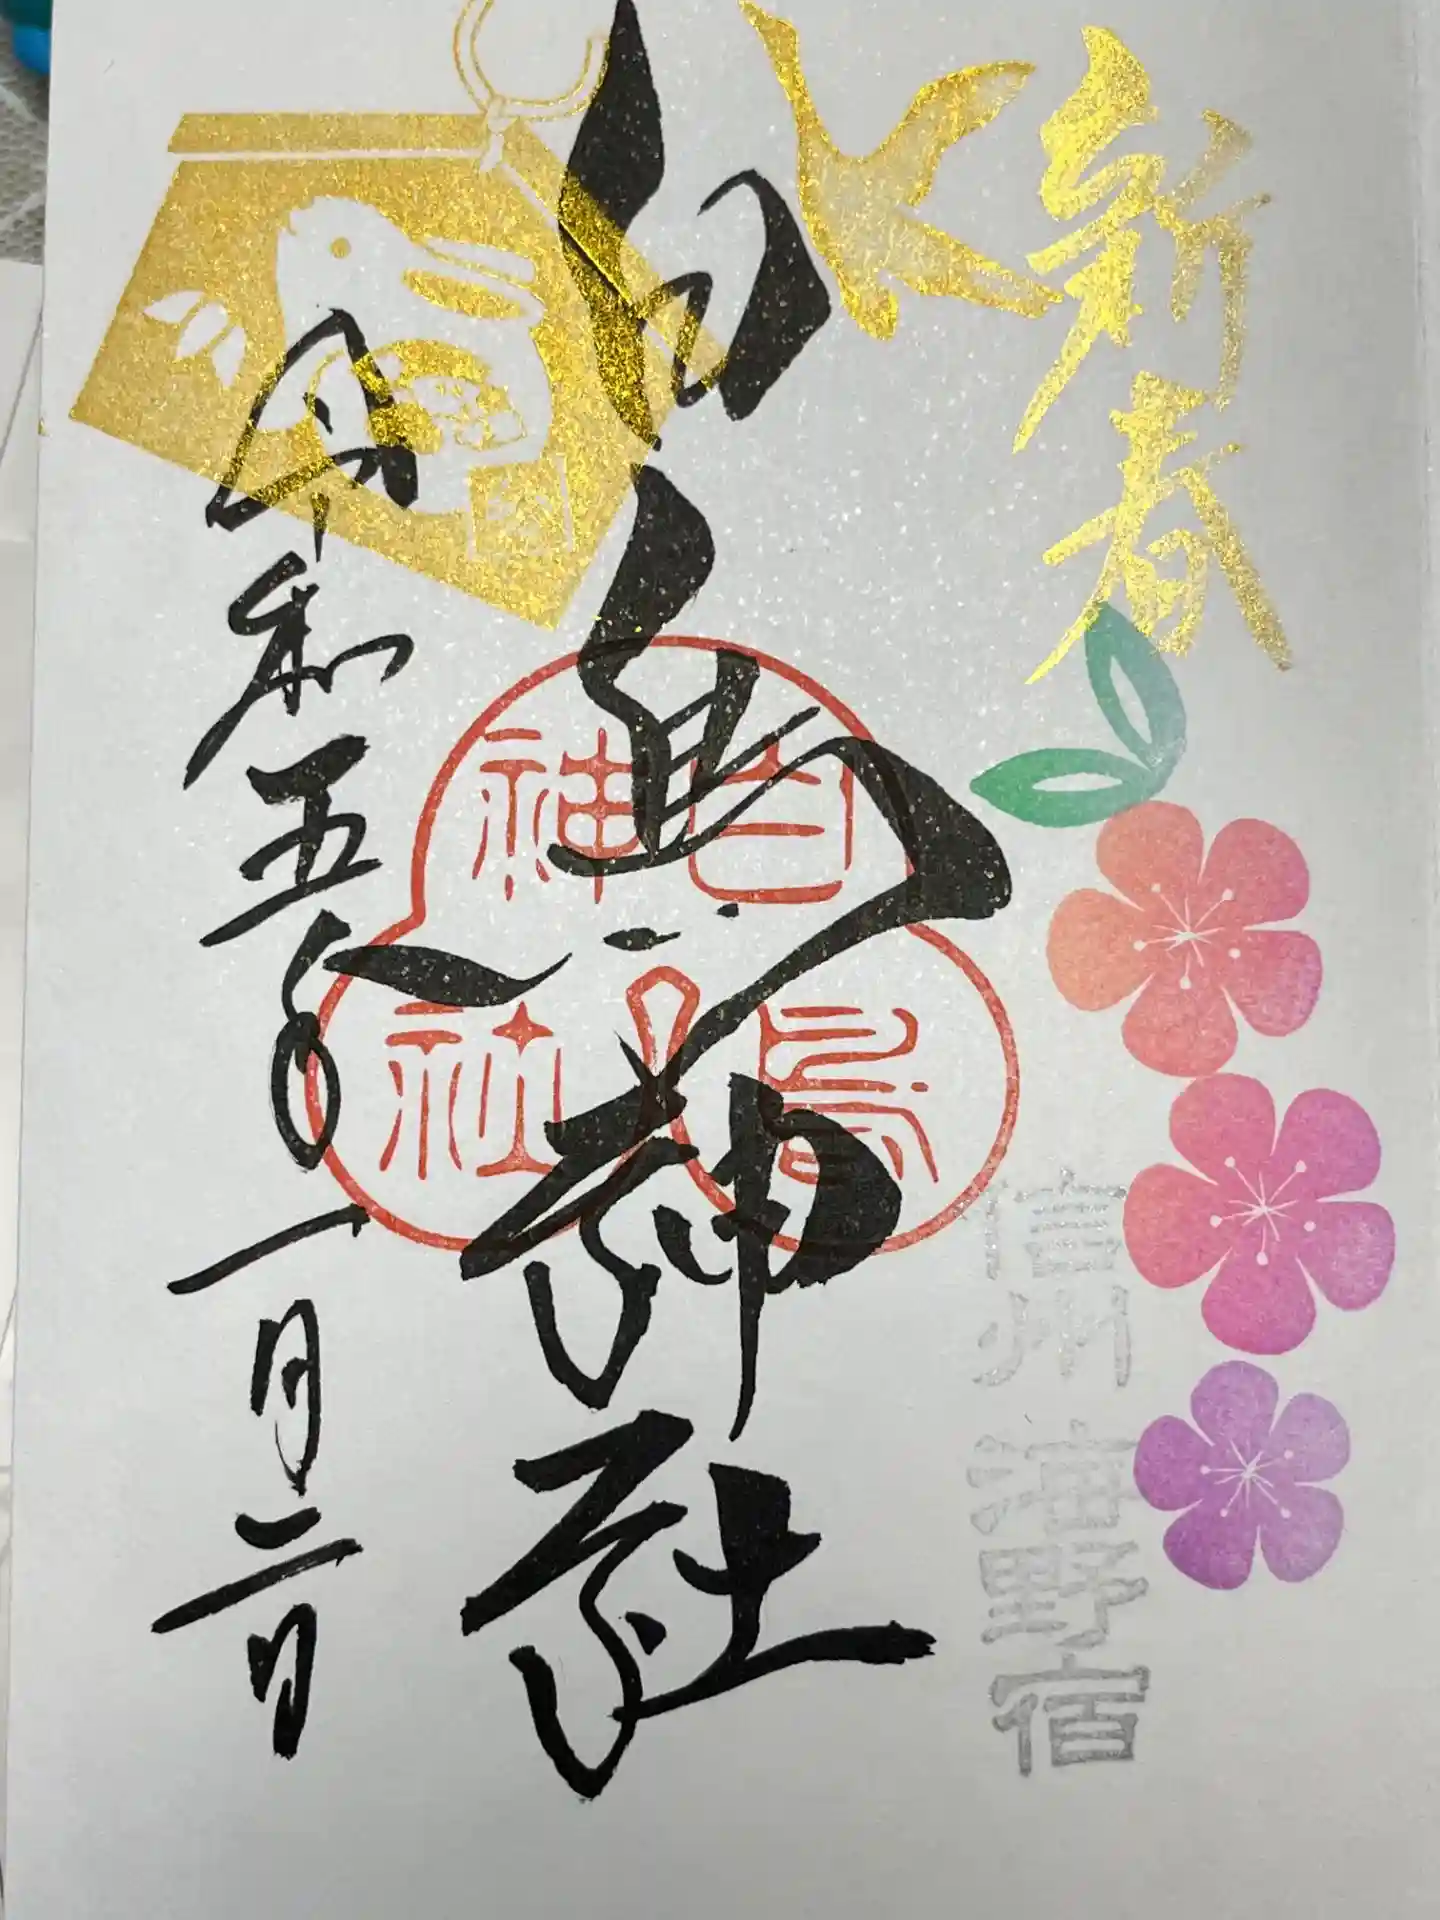 新春
信州 海野宿
白鳥神社
白鳥神社
令和五年一月二日